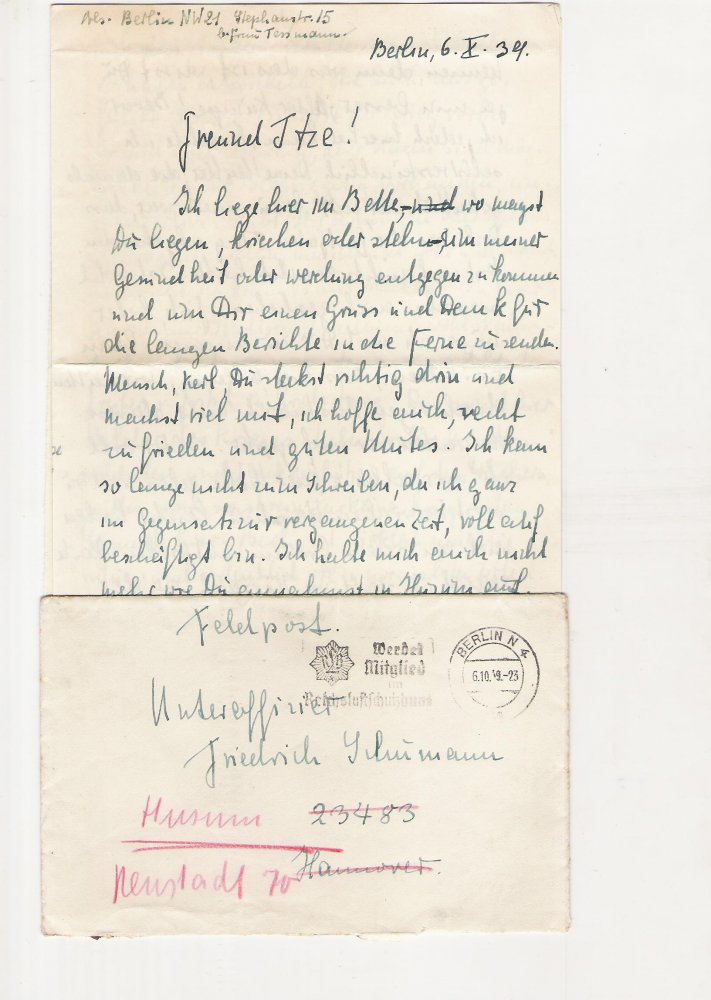 Abs. Berlin NW21 Stephanstr. 15
b. Frau Tessmann.
Berlin, 6. X. 39.
Freund Itze!
Ich liege hier im Bette, und wo magst
Du liegen, kriechen oder stehn, um meiner
Gesundheit oder werdung entgegen zu kommen
und um Dir einen Gruss und Dank für
die langen Berichte in die Ferne zu senden.
Mensch, Kerl, Du steckst richtig drin und
machst viel mit, ich hoffe auch, recht
zufrieden und guten Mutes. Ich kam
so lange nicht zum Schreiben, da ich ganz
im Gegensatz zur vergangenen Zeit, voll auf
beschäftigt bin. Ich halte mich auch nicht
mehr wie Du annahmst in Husum auf.
Feldpost.
Werdet
Mitglied
im
Reichsluftschutzbund
BERLIN N 4
6.10.39.-23
Unteroffizier
Friedrich Schumann
Husum 23483
Neustadt 70 Hannover.